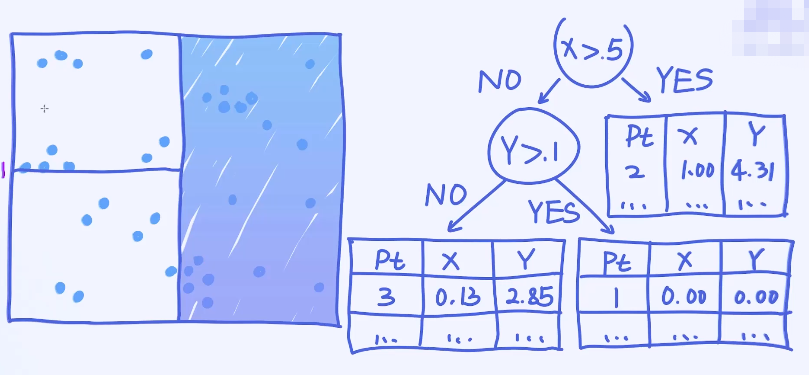 X>.5
NO YES
Y>.1
Pt X Y
2 1.00 4.31
... ... ...
NO YES
Pt X Y
3 0.13 2.85
... ... ...
Pt X Y
1 0.00 0.00
... ... ...